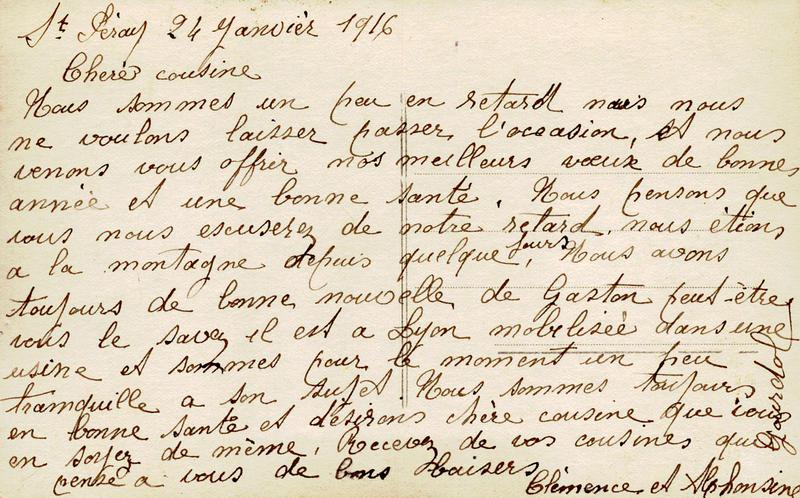 St Péray 24 Janvièr 1916
Cherè cousine
Nous sommes un peu en retard mais nous
ne voulons laisser passer l'occasion, et nous
venons vous offrir nos meilleurs vœux de bonne
année et une bonne santé. Nous pensons que
vous nous escuserez de notre retard. nous étions
a la montagne depuis quelque jours, Nous avons
toujours de bonne nouvelle de Gaston peut-être
vous le savez il est a Lyon mobilisée dans une
usine et sommes pour le moment un peu
tramquille a son sujet. Nous sommes toujours
en bonne santé et désirons chère cousine que vous
en soyez de même. Recevez de vos cousines que
pense a vous de bons Baisers
Clémence et Alphonsine
Gourdol